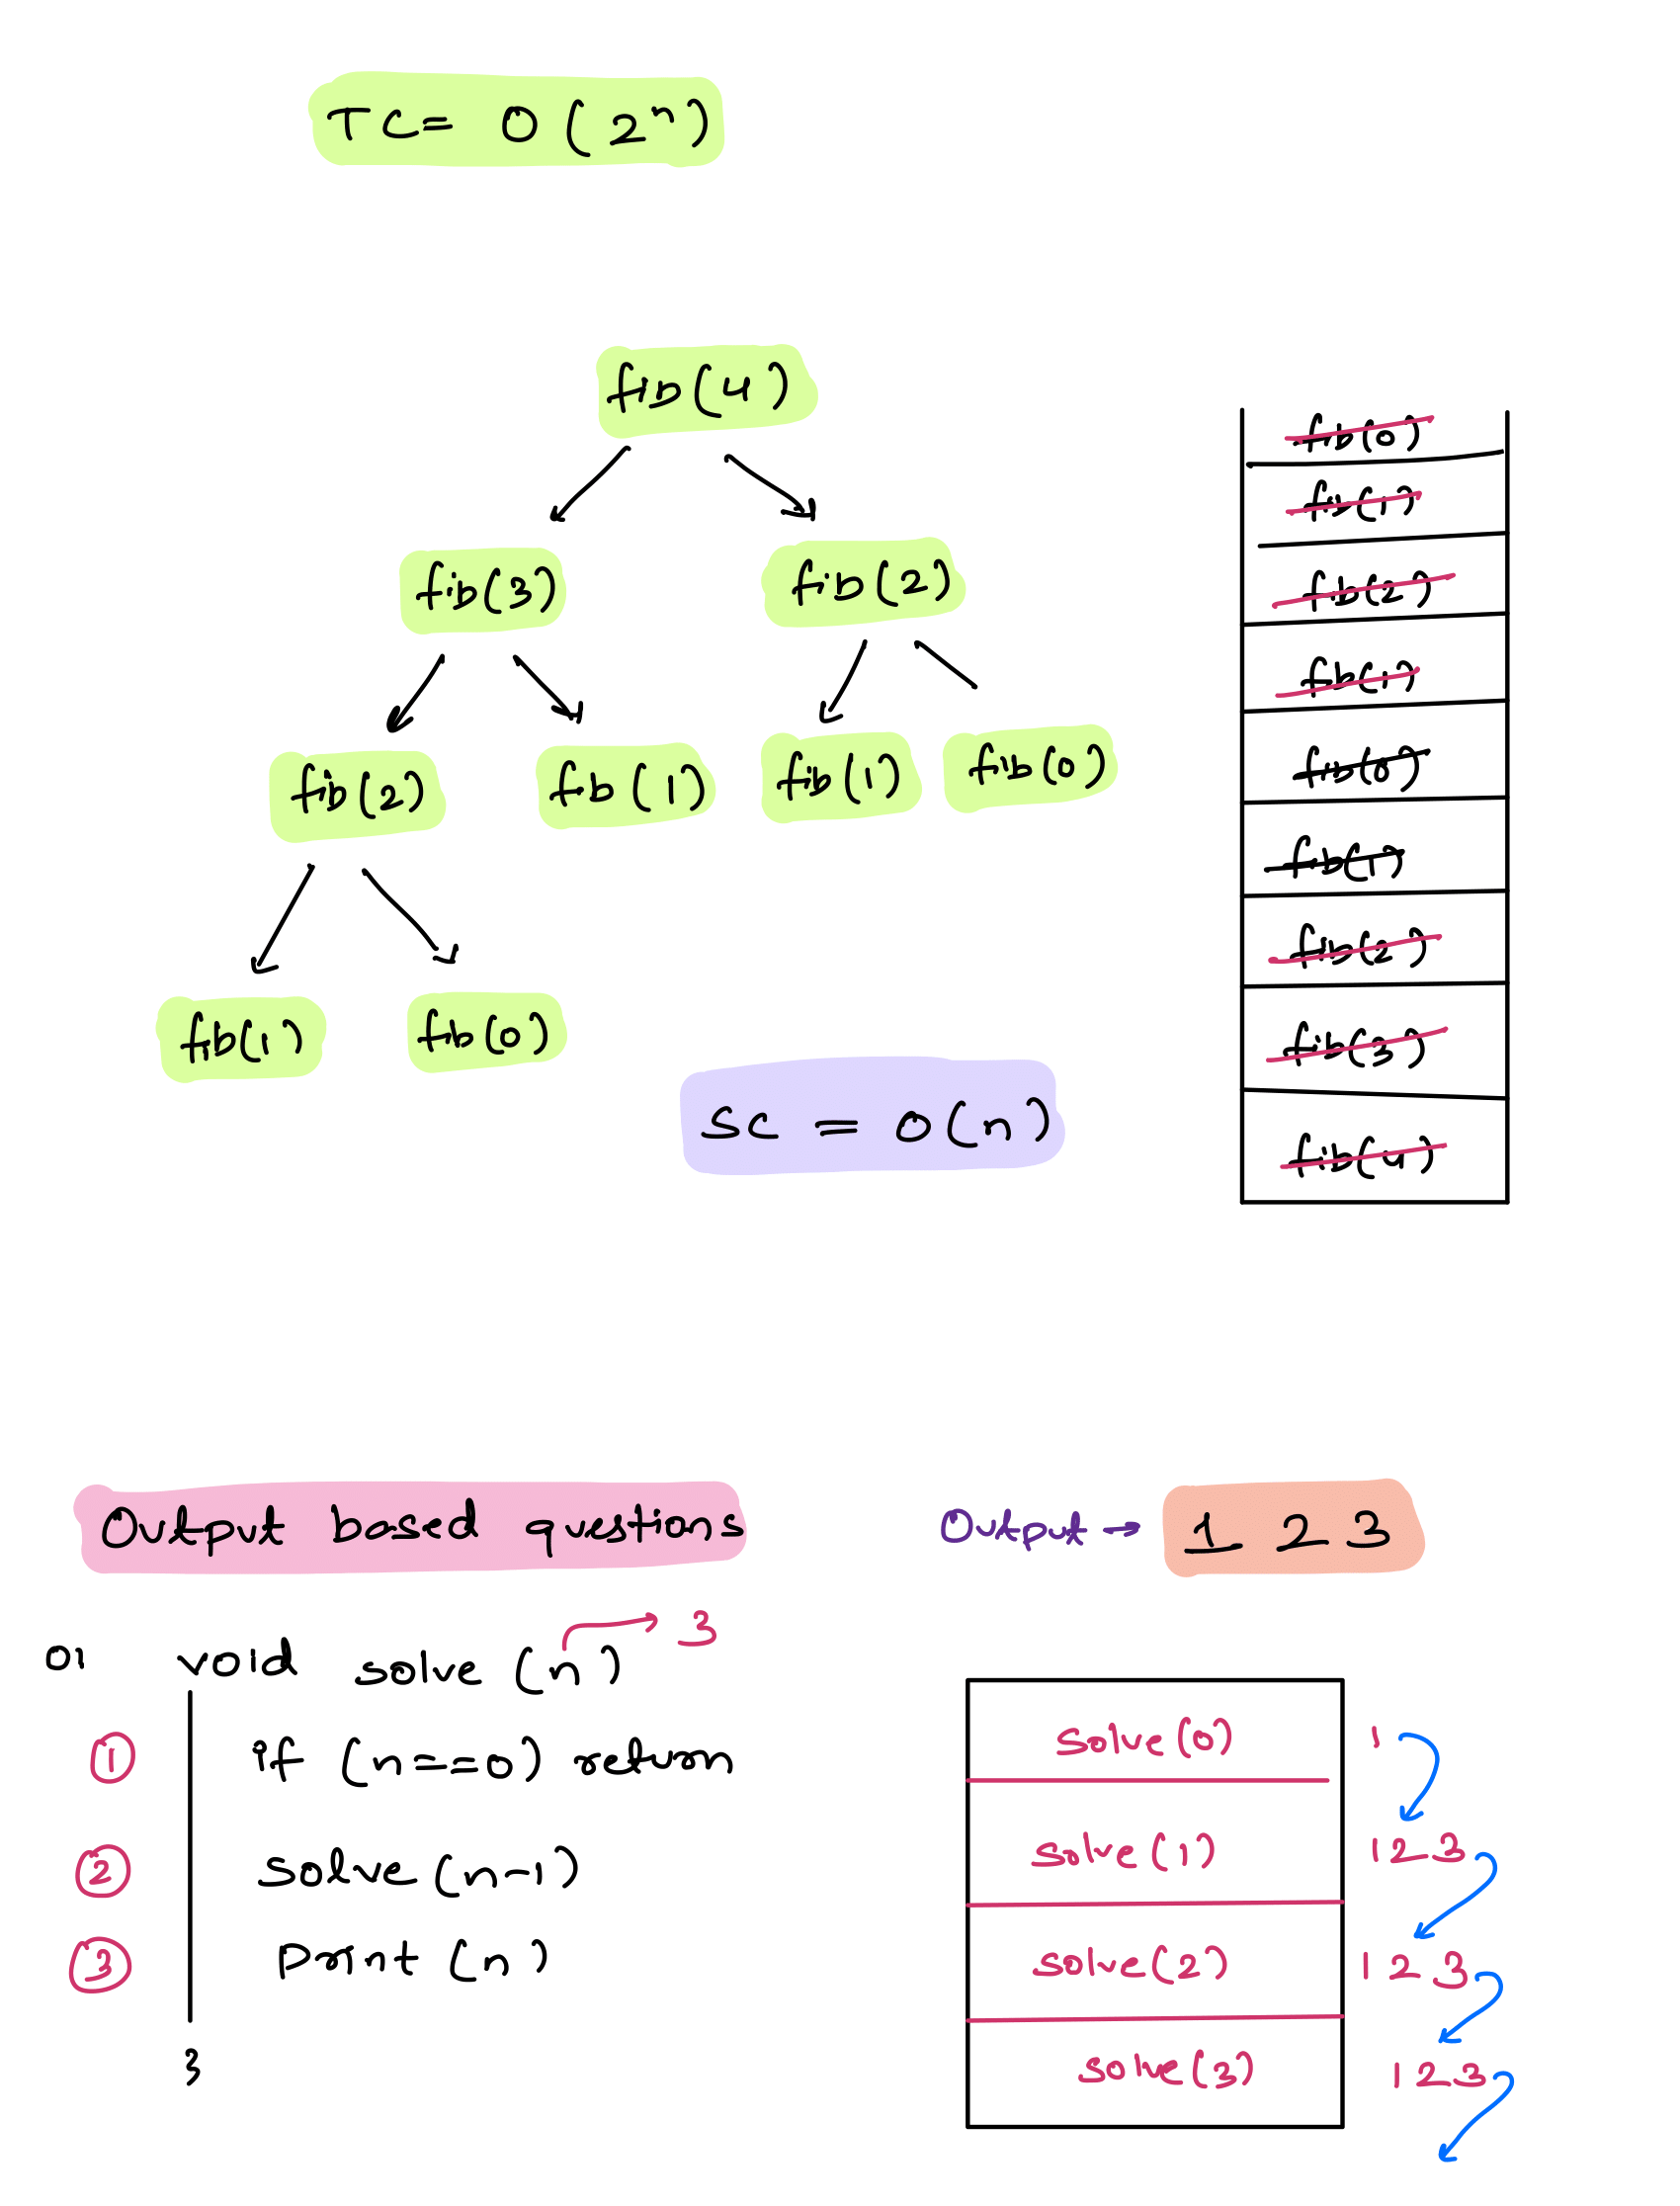 TC= O(2ⁿ)
fib(4)
fib(3) fib(2)
fib(2) fib(1) fib(1) fib(0)
fib(1) fib(0)
fib(0)
fib(1)
fib(2)
fib(1)
fib(0)
fib(1)
fib(2)
fib(3)
fib(4)
SC = O(n)
Output based questions
Output → 1 2 3
01 void solve (n) → 3
① if (n==0) return
② solve (n-1)
③ Print (n)
}
solve(0) 1
solve(1) 1 2 3
solve(2) 1 2 3
solve(3) 1 2 3